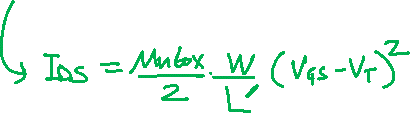 ↳ I_DS = μnCox/2 · W/L' (V_GS - V_T)^2